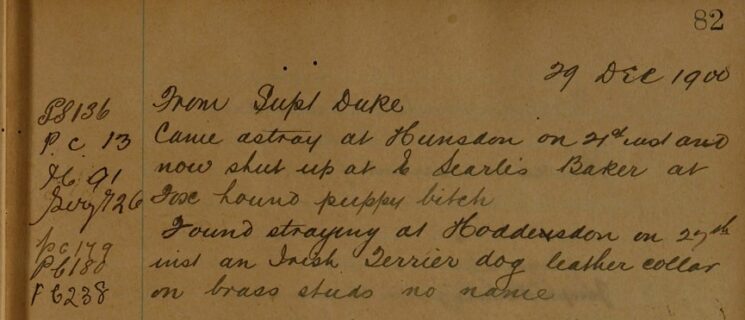 82
29 DEC 1900
From Supt Duke
PS136
P.C. 13 Came astray at Hunsdon on 21st inst and
91 now shut up at Searles Baker at
Serg 726 Fox hound puppy bitch
Found straying at Hoddesdon on 27th
pc 179
Pc 180 inst an Irish Terrier dog leather collar
Pc 238 on brass studs no name